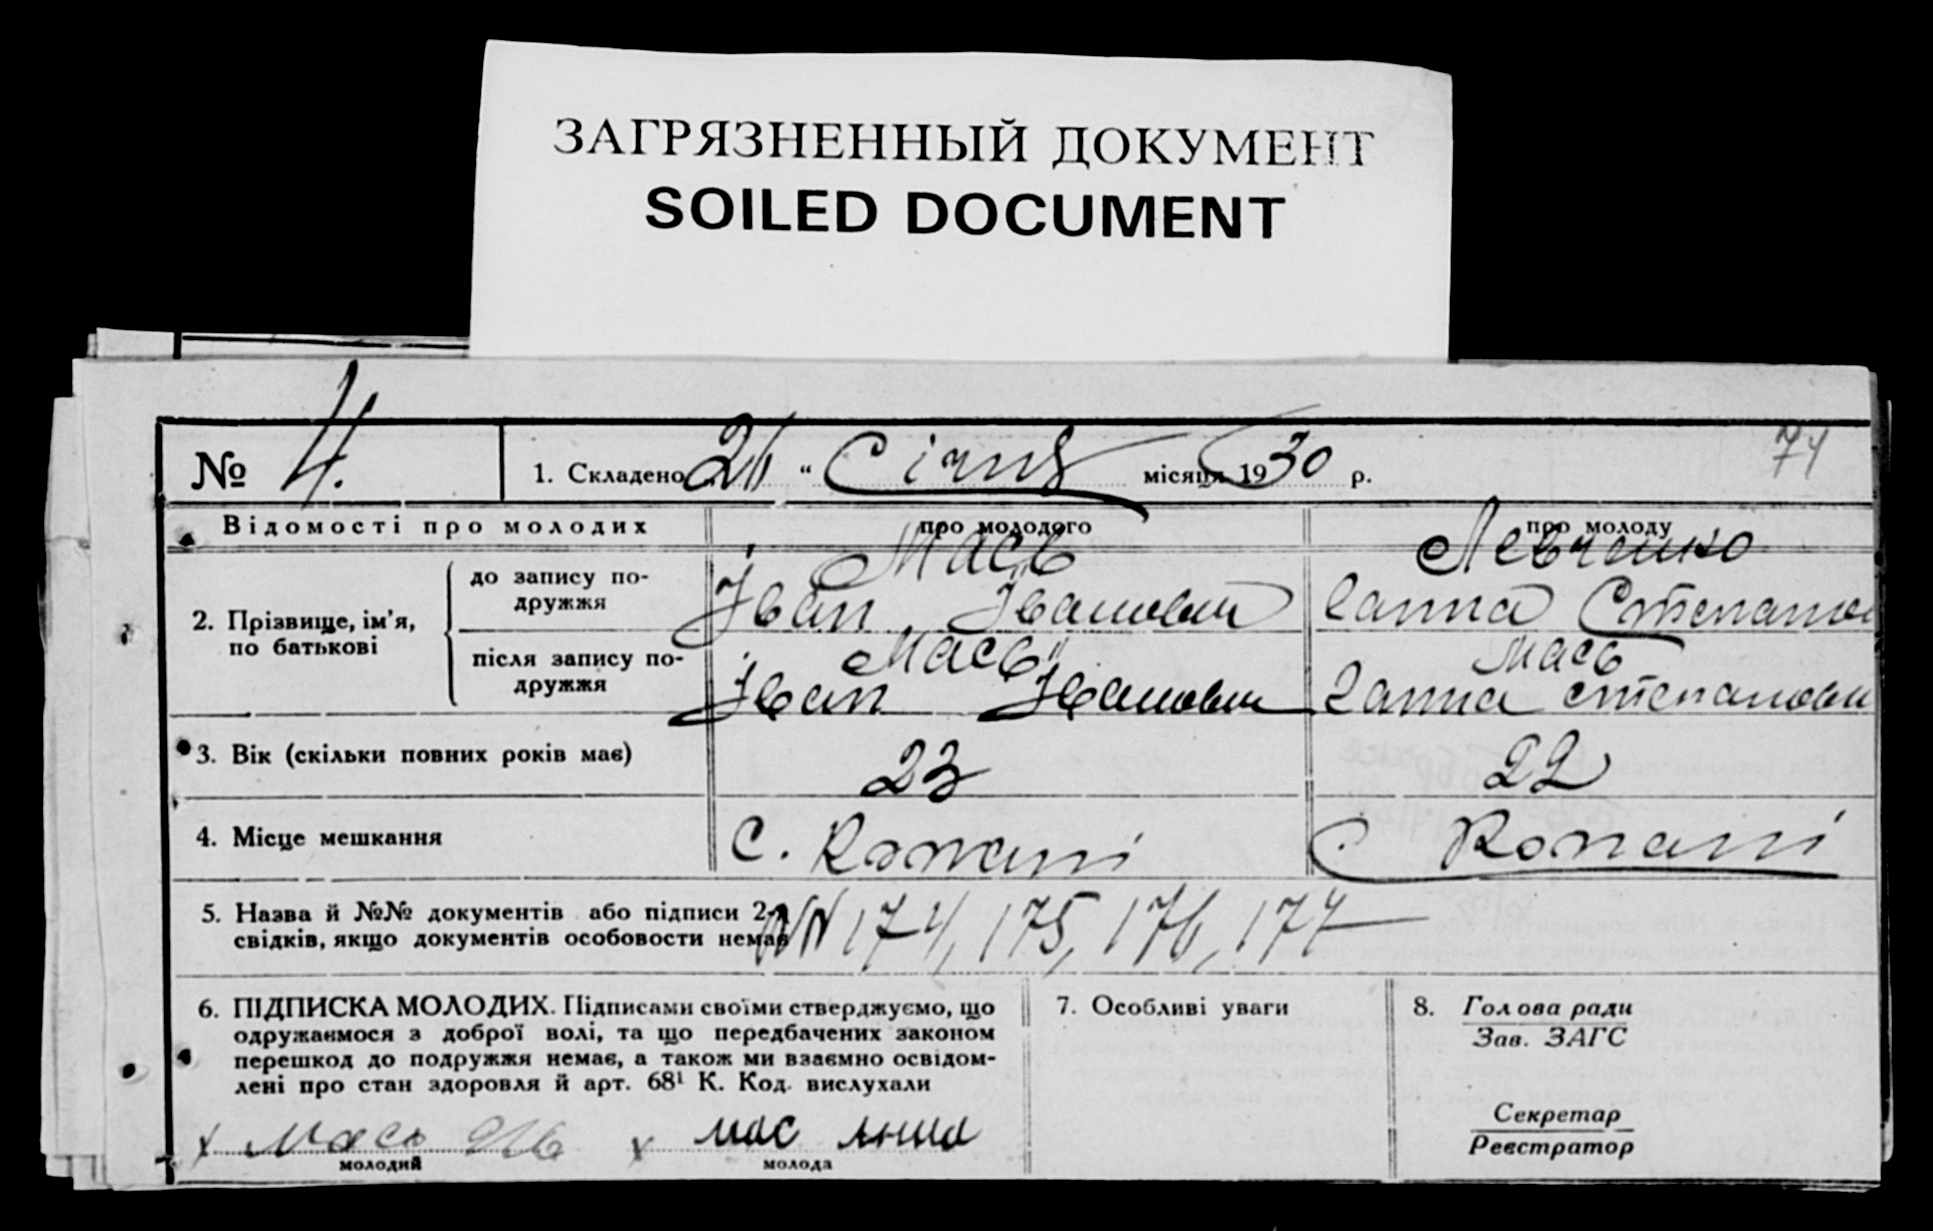 ЗАГРЯЗНЕННЫЙ ДОКУМЕНТ
SOILED DOCUMENT
74
№ 4.
1. Складено „21“ Січня місяця 1930 р.
Відомості про молодих
про молодого
про молоду
2. Прізвище, ім'я, по батькові
до запису по-
дружжя
Мась
Іван Іванович
Левченко
Ганна Степанов
після запису по-
дружжя
Мась
Іван Іванович
Мась
Ганна Степанови
3. Вік (скільки повних років має)
23
22
4. Місце мешкання
С. Копані
С. Копані
5. Назва й №№ документів або підписи 2-х
свідків, якщо документів особовости немає
NN 174, 175, 176, 177
6. ПІДПИСКА МОЛОДИХ. Підписами своїми стверджуємо, що
одружаємося з доброї волі, та що передбачених законом
перешкод до подружжя немає, а також ми взаємно освідом-
лені про стан здоровля й арт. 68¹ К. Код. вислухали
х Мась х мас
молодий
молода
7. Особливі уваги
8. Голова ради
Зав. ЗАГС
Секретар
Реєстратор